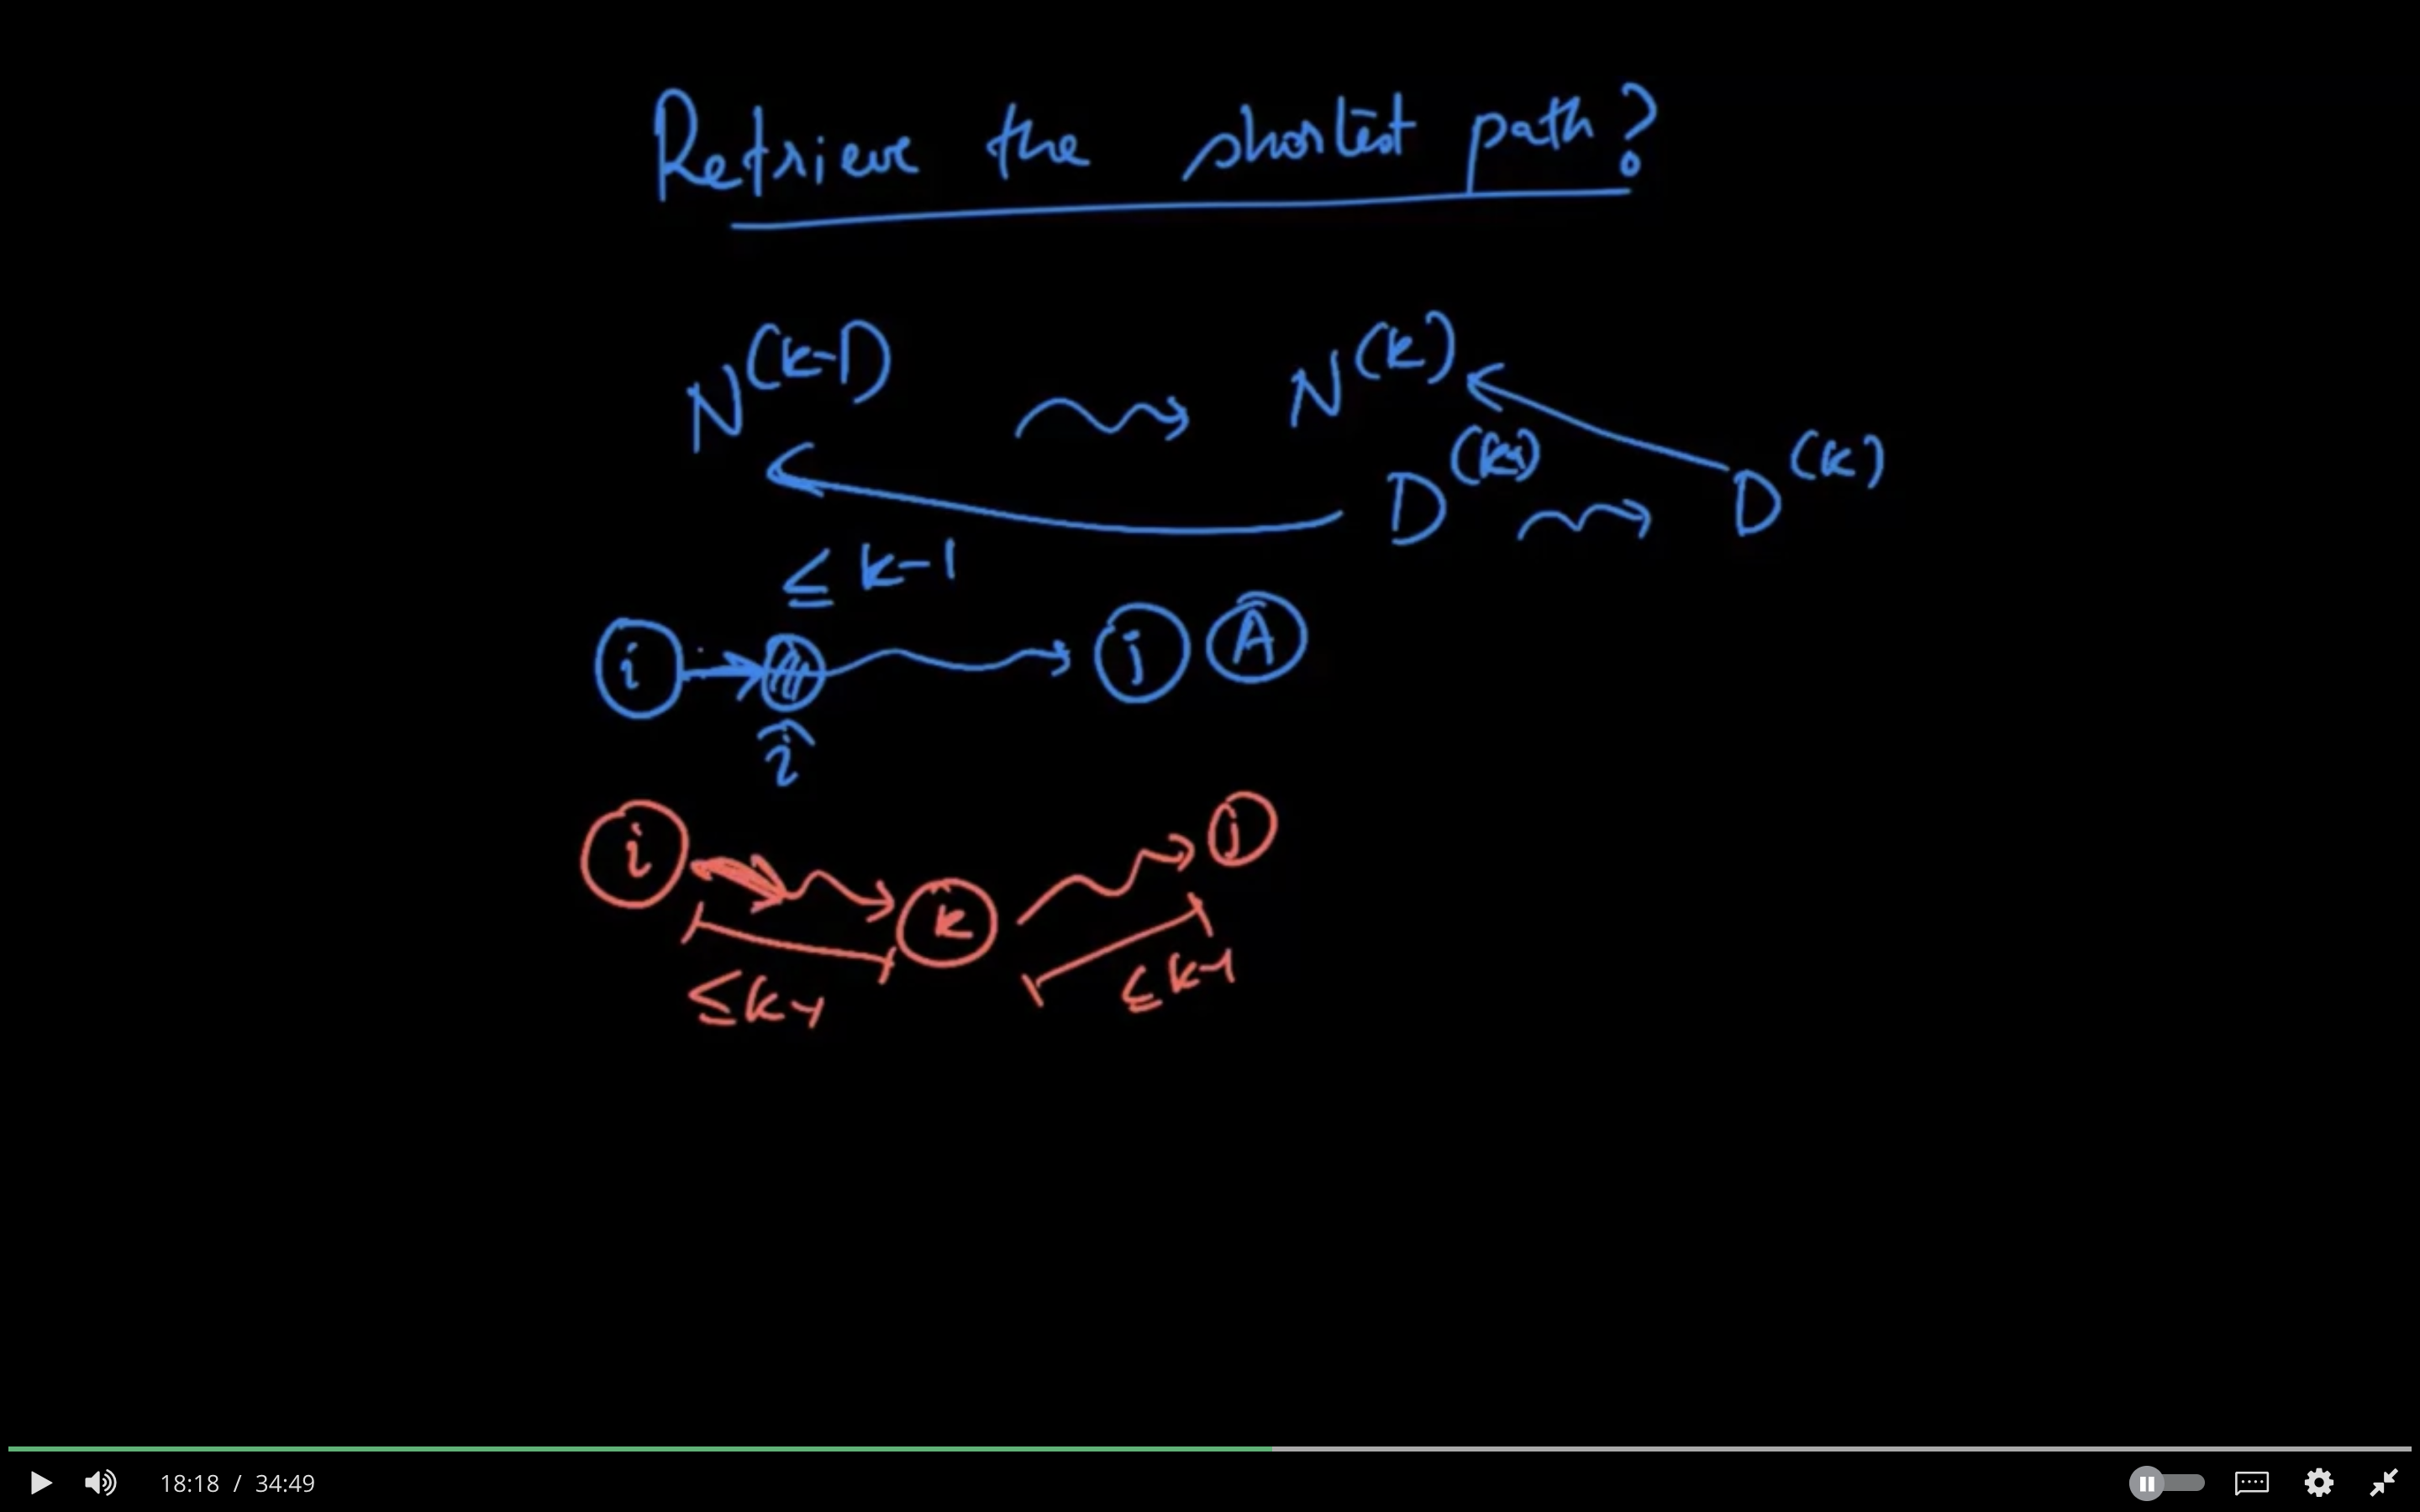 Retrieve the shortest path?
N^(k-1) N^(k)
D^(k-1) D^(k)
≤ k-1
i j A
î
i k j
≤k-1 ≤k-1
18:18 / 34:49